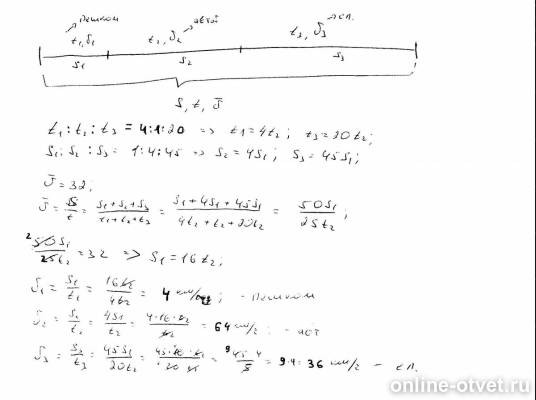 пешком автоб. эл.
t₁, ϑ₁ t₂, ϑ₂ t₃, ϑ₃
S₁ S₂ S₃
S, t, ϑ̄
t₁ : t₂ : t₃ = 4:1:20 => t₁ = 4t₂ ; t₃ = 20t₂ ;
S₁ : S₂ : S₃ = 1:4:45 => S₂ = 4S₁ ; S₃ = 45S₁ ;
ϑ̄ = 32 ;
ϑ̄ = S/t = (S₁+S₂+S₃)/(t₁+t₂+t₃) = (S₁+4S₁+45S₁)/(4t₂+t₂+20t₂) = 50S₁/25t₂ ;
² 50S₁/25t₂ = 32 => S₁ = 16t₂ ;
ϑ₁ = S₁/t₁ = 16t₂/4t₂ = 4 км/час ; - пешком
ϑ₂ = S₂/t₂ = 4S₁/t₂ = 4·16·t₂/t₂ = 64 км/ч ; - авт
ϑ₃ = S₃/t₃ = 45S₁/20t₂ = 45·16·t₂/20 t₂ = ⁹45·4/5 = 9·4 = 36 км/ч - эл.
online-otvet.ru